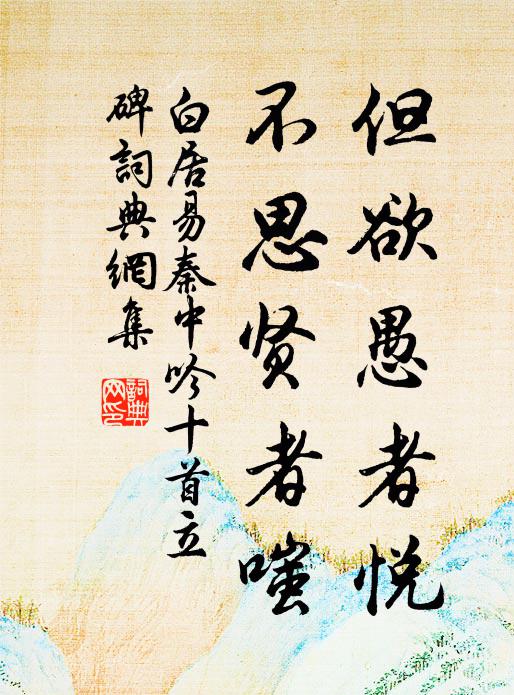 但欲愚者悦
不思贤者嗤
白居易秦中吟十首立
碑詞典網集
詞典網印